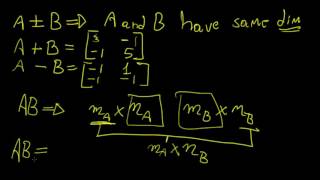 A ± B ⇒ A and B have same dim
A + B = [3 -1; -1 5]
A - B = [-1 1; -1 -1]
AB ⇒ m_A × n_A m_B × n_B
m_A × n_B
AB =